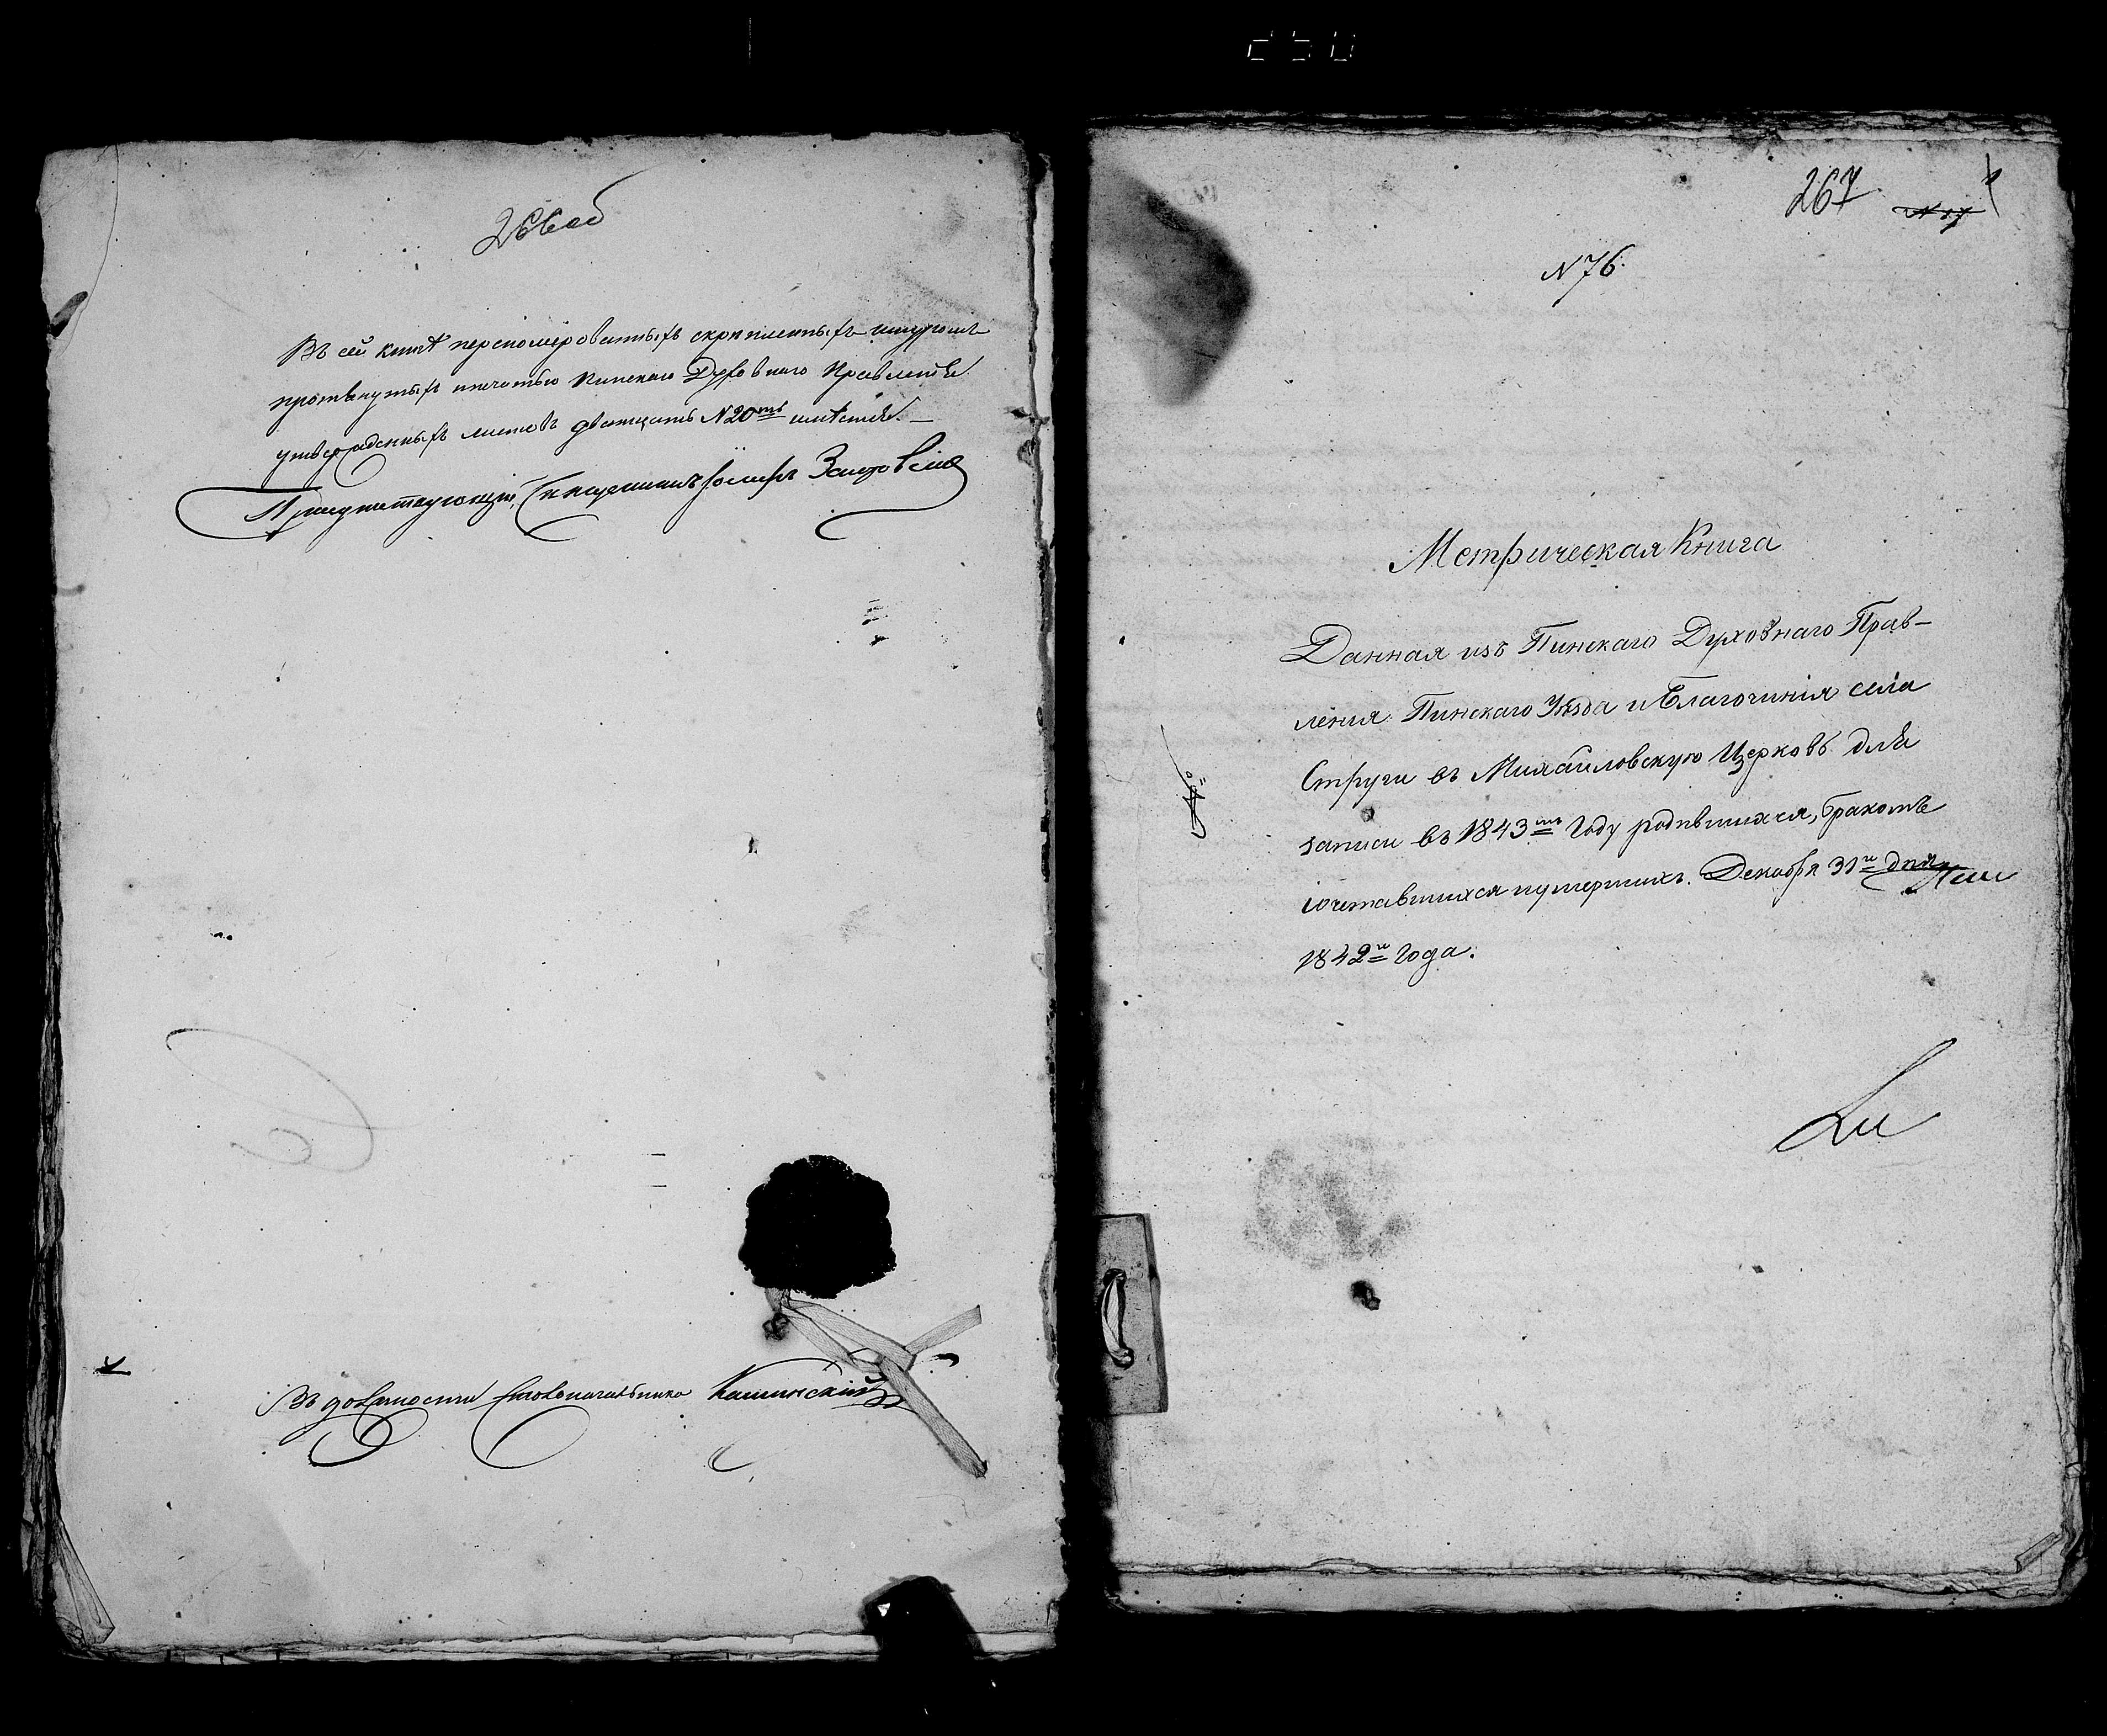 250
266 об
Въ сей книгѣ переномерованныхъ скрѣпленныхъ шнуромъ
протянутыхъ печатью Пинскаго Духовнаго Правленія
утвержденныхъ листовъ дватцать N 20ть имѣется. —
Присутствующій, Священникъ Іосифъ
Въ должности Столоначальника
267
N 76.
Метрическая Книга
Данная изъ Пинскаго Духовнаго Прав-
ленія Пинскаго Уѣзда и Благочинія села
Струги въ Михайловскую Церковь для
записи въ 1843мъ Году родившихся, бракомъ
сочетавшихся и умершихъ. Декабря 31го дня
1842го Года.